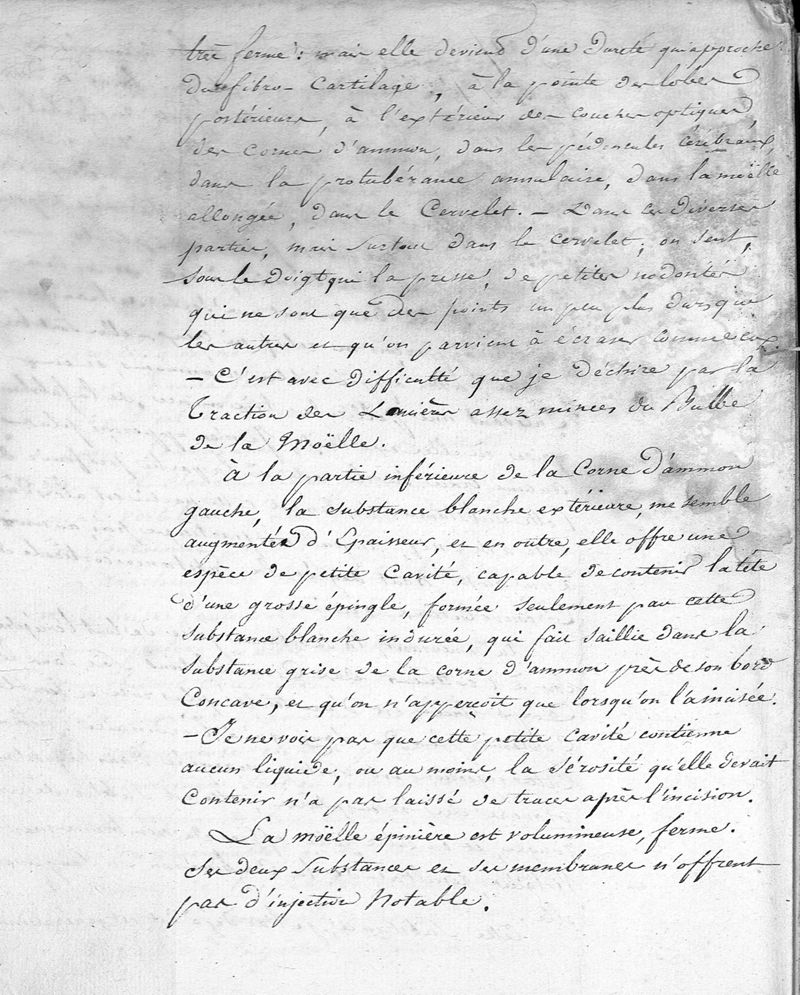 très ferme : mais elle devient d'une dureté qui approche
du fibro-cartilage, à la pointe des lobes
postérieurs, à l'extérieur des couches optiques
des cornes d'ammon, dans les pédoncules cérébraux,
dans la protubérance annulaire, dans la moëlle
allongée, dans le Cervelet. — Dans ces diverses
parties, mais surtout dans le cervelet, on sent,
sous le doigt qui la presse, de petites nodosités
qui ne sont que des points un peu plus durs que
les autres et qu'on parvient à écraser comme eux.
— C'est avec difficulté que je déchire par la
Traction des Lanières assez minces du Bulbe
de la Moëlle.
À la partie inférieure de la Corne d'ammon
gauche, la substance blanche extérieure, me semble
augmentée d'Épaisseur, et en outre, elle offre une
espèce de petite Cavité, capable de contenir la tête
d'une grosse épingle, formée seulement par cette
substance blanche indurée, qui fait saillie dans la
substance grise de la corne d'ammon près de son bord
Concave, et qu'on n'apperçoit que lorsqu'on l'a incisée.
— Je ne vois pas que cette petite cavité contienne
aucun liquide, ou au moins, la sérosité qu'elle devait
Contenir n'a pas laissé de traces après l'incision.
La moëlle épinière est volumineuse, ferme.
Ses deux substances et ses membranes n'offrent
pas d'injection Notable.